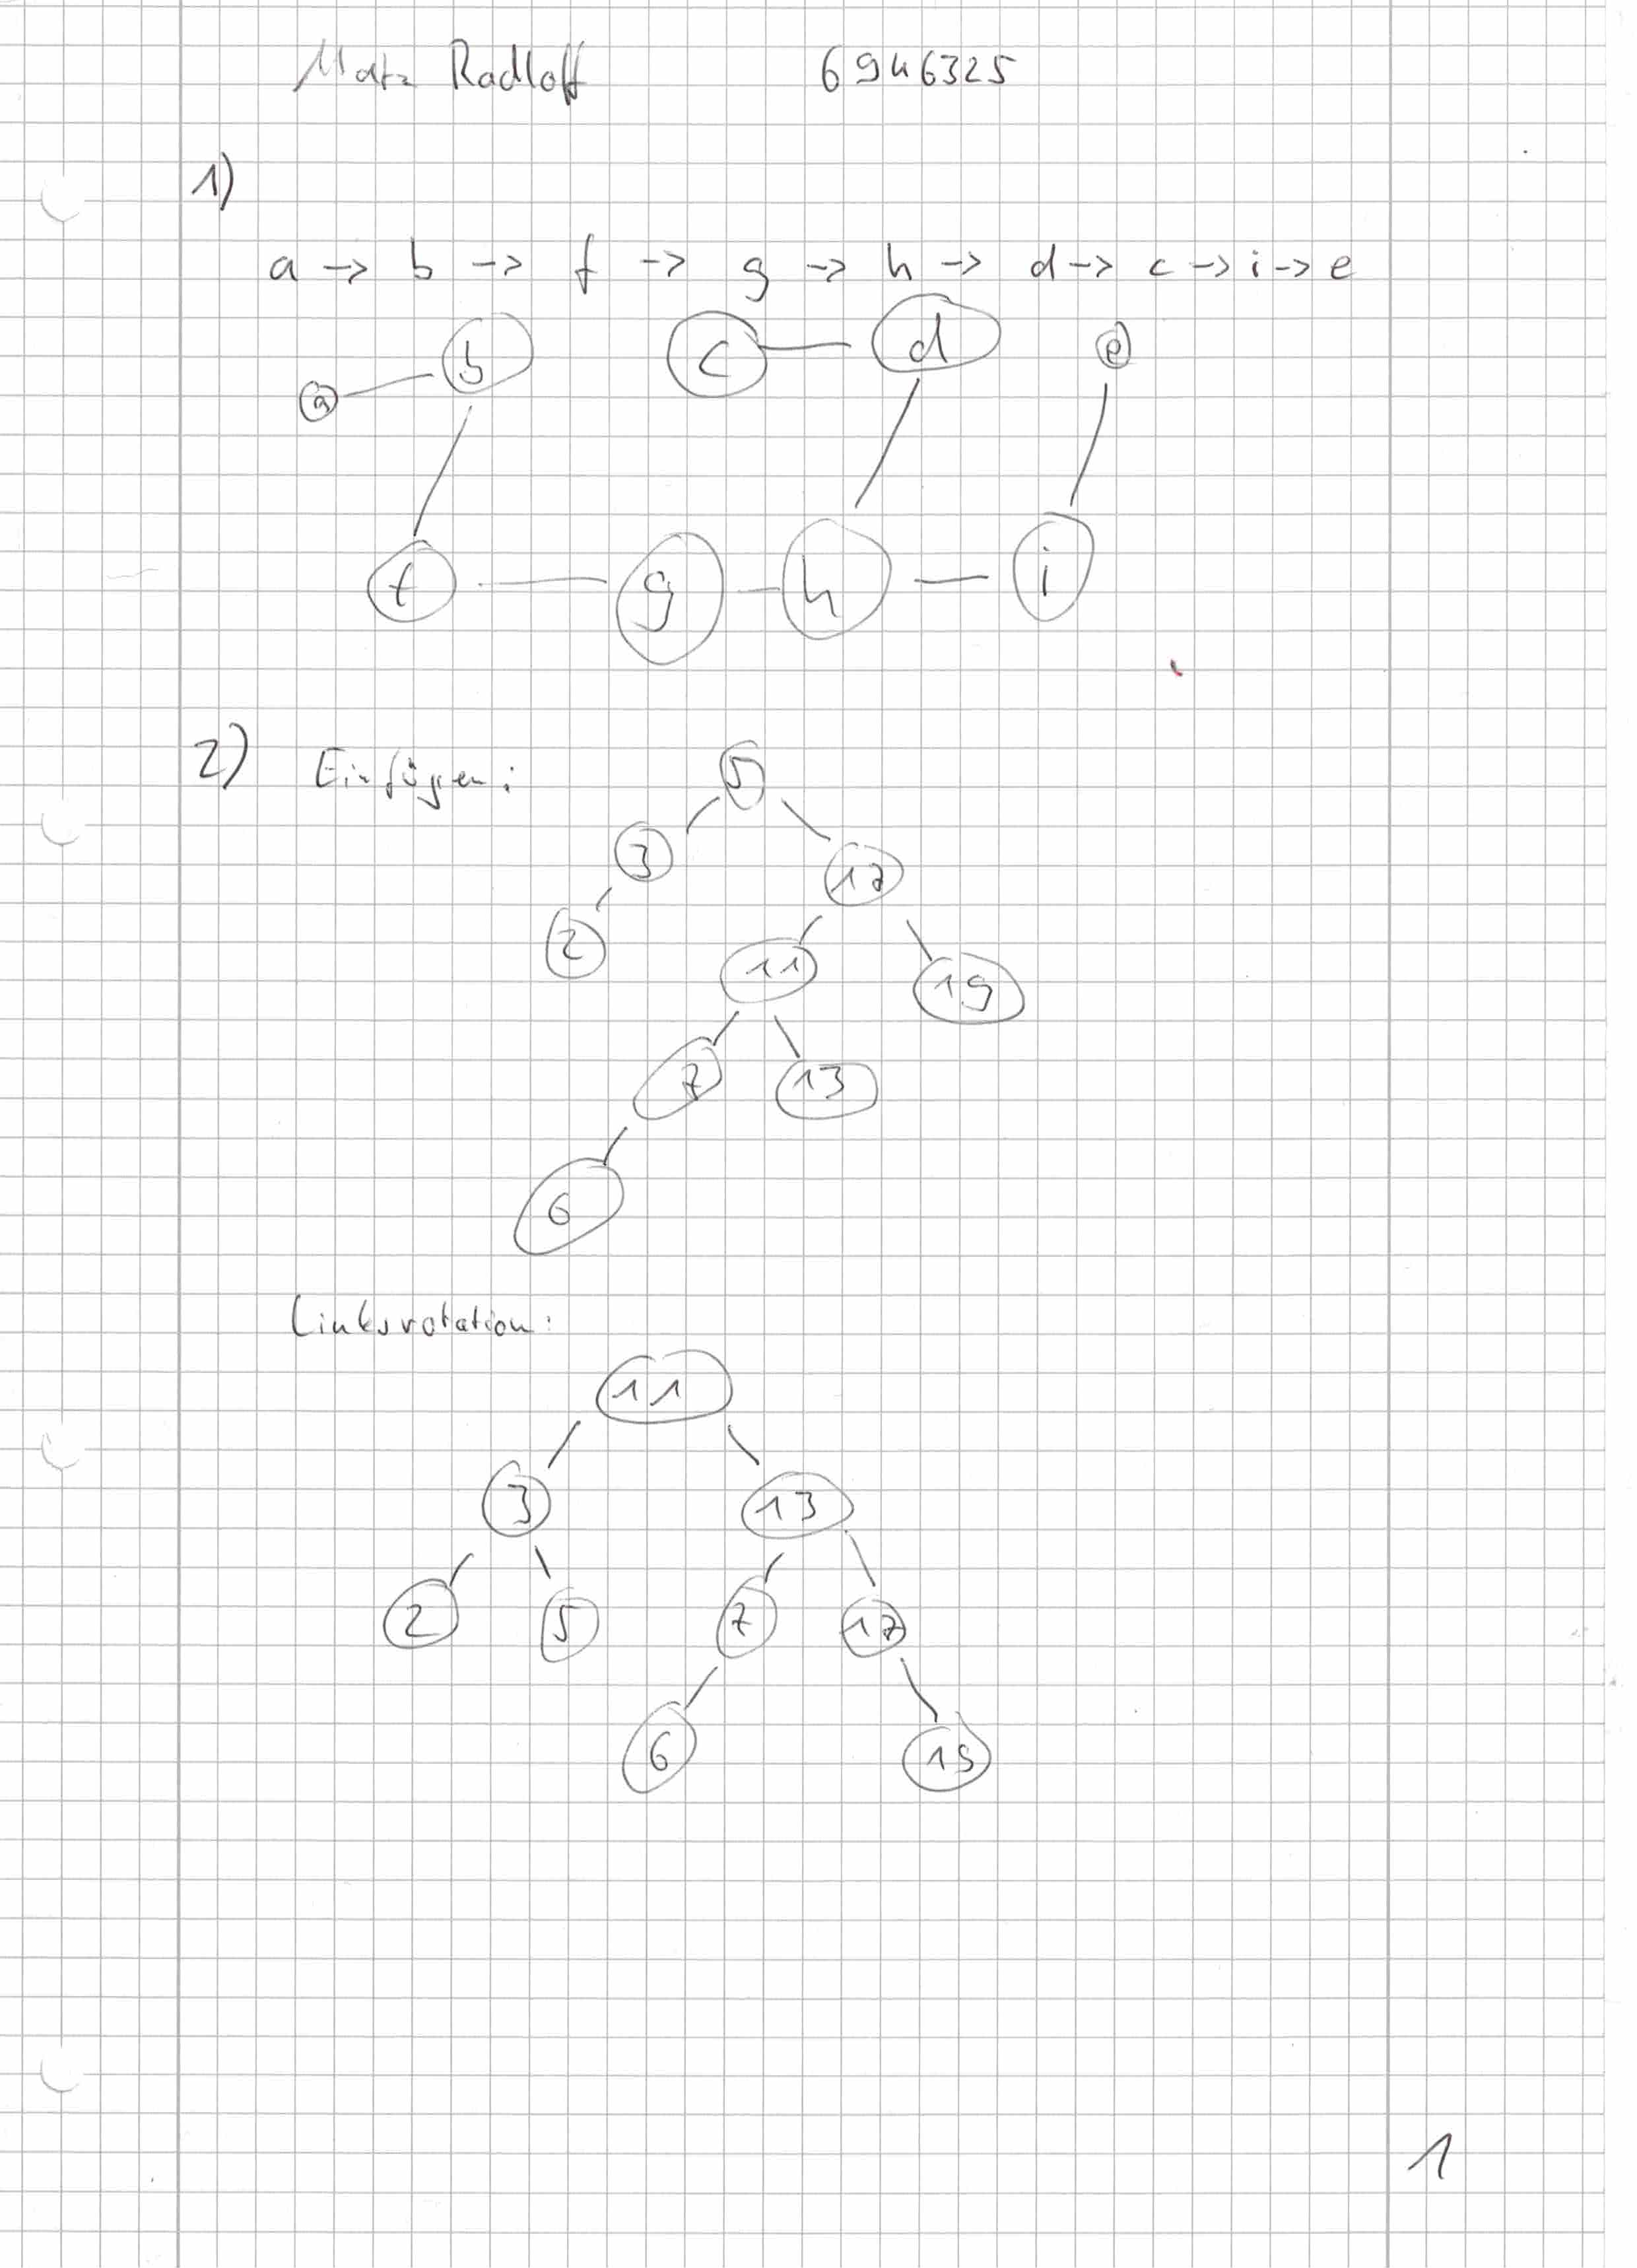 Matz Radloff 6946325
1)
a -> b -> f -> g -> h -> d -> c -> i -> e
b c d e
a
f g h i
2) Einfügen: 5
3 17
2 11 19
7 13
6
Linksrotation:
11
3 13
2 5 7 17
6 19
1